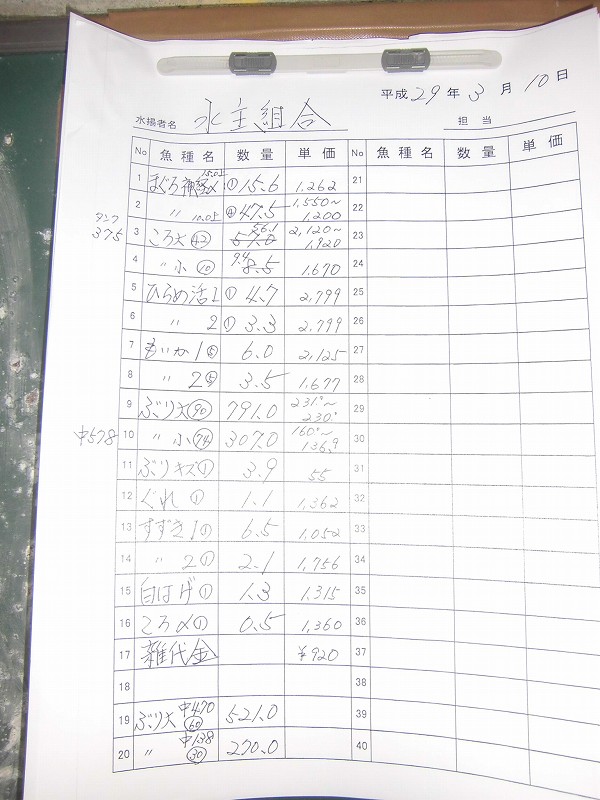 平成 29 年 3 月 10 日
水揚者名 水主組合 担当
No 魚種名 数量 単価 No 魚種名 数量 単価
1 まぐろ神経〆 15.05 ① 15.6 1,262 21
2 〃 10.05 ④ 47.5 1,550~1,200 22
375
3 ころ大 ㊷ 57.0 56.1 2,120~1,920 23
4 〃小 ⑩ 8.5 9.4 1,670 24
5 ひらめ活1 ① 4.7 2,799 25
6 〃 2 ① 3.3 2,799 26
7 もいか1 ⑤ 6.0 2,125 27
8 〃 2 ⑤ 3.5 1,677 28
9 ぶり大 (90) 791.0 231.°~230.° 29
中578
10 〃 小 (74) 307.0 160.°~136.9 30
11 ぶりキズ ① 3.9 55 31
12 ぐれ ① 1.1 1,362 32
13 すずき1 ① 6.5 1,052 33
14 〃 2 ① 2.1 1,756 34
15 白はげ ① 1.3 1,315 35
16 ころ〆 ① 0.5 1,360 36
17 雑代金 ¥920 37
18 38
19 ぶり大 中470 (60) 521.0 39
20 〃 中138 (30) 270.0 40